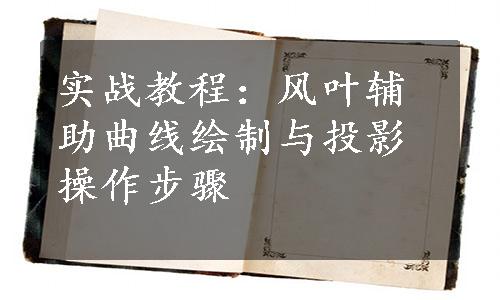 实战教程：风叶辅
助曲线绘制与投影
操作步骤